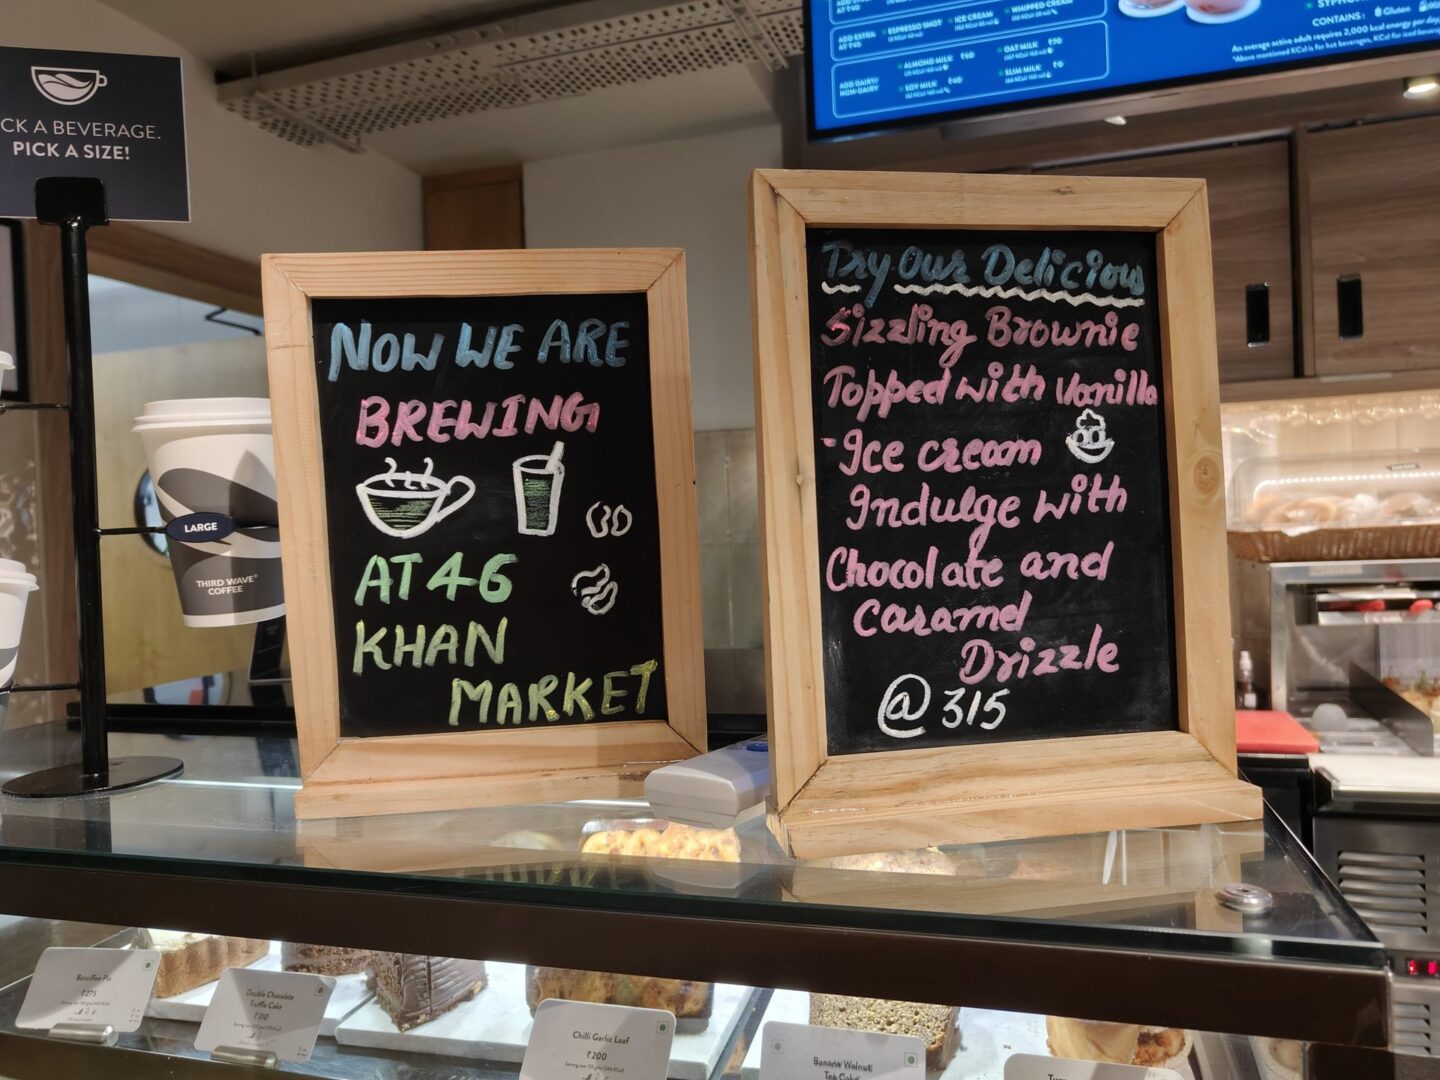 CK A BEVERAGE.
PICK A SIZE!
LARGE
THIRD WAVE
COFFEE
NOW WE ARE
BREWING
AT 46
KHAN
MARKET
Try Our Delicious
Sizzling Brownie
Topped with Vanilla
Ice cream
Indulge with
Chocolate and
Caramel
Drizzle
@ 315
ADD EXTRA
ESPRESSO SHOT
ICE CREAM
WHIPPED CREAM
ADD DAIRY/
NON-DAIRY
ALMOND MILK ₹60
OAT MILK ₹70
SOY MILK
SLIM MILK ₹0
CONTAINS: Gluten
An average active adult requires 2,000 kcal energy per day,
Banoffee Pie
₹275
Double Chocolate
Truffle Cake
₹310
Chilli Garlic Loaf
₹200
Banana Walnut
Tea Cake